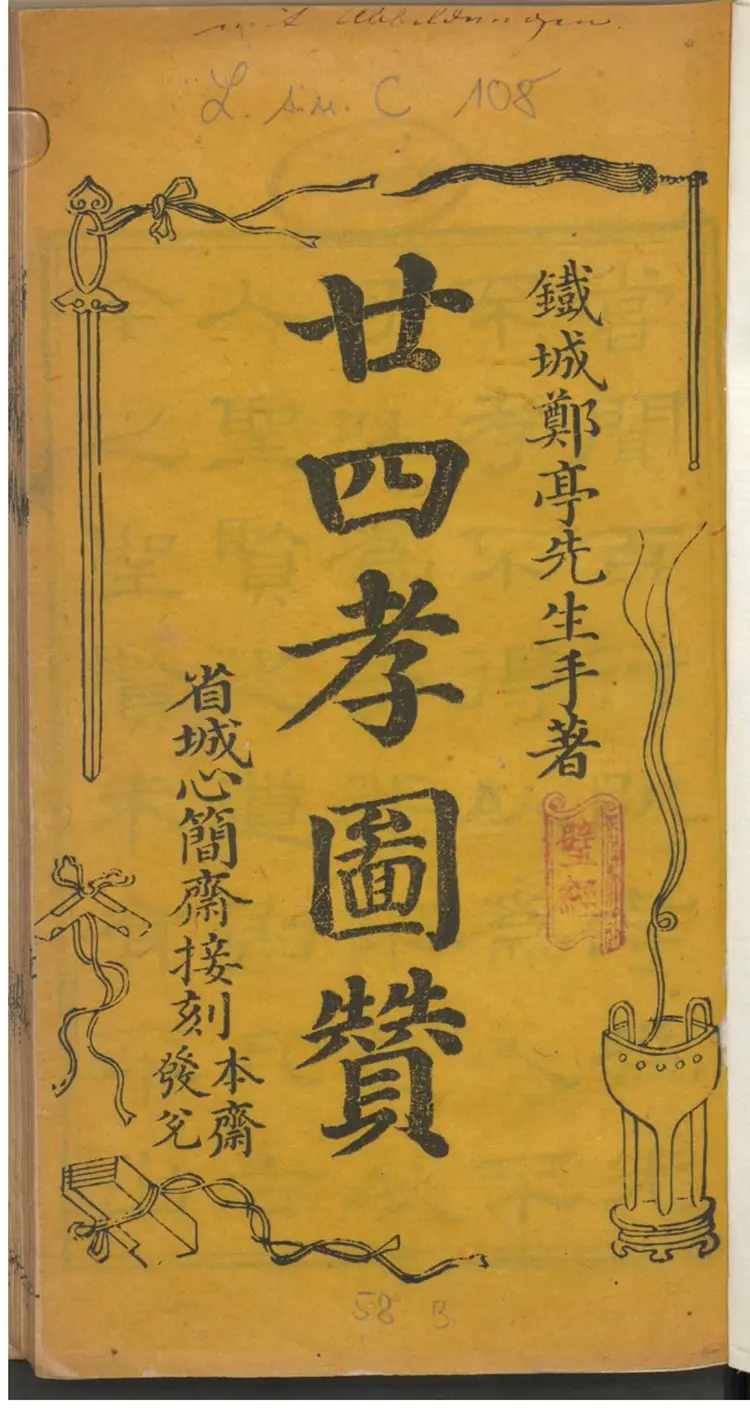 mit Abbildungen.
L. sin. C 108
鐵城鄭亭先生手著
廿四孝圖贊
省城心簡齋接刻
本齋
發兌
58 B